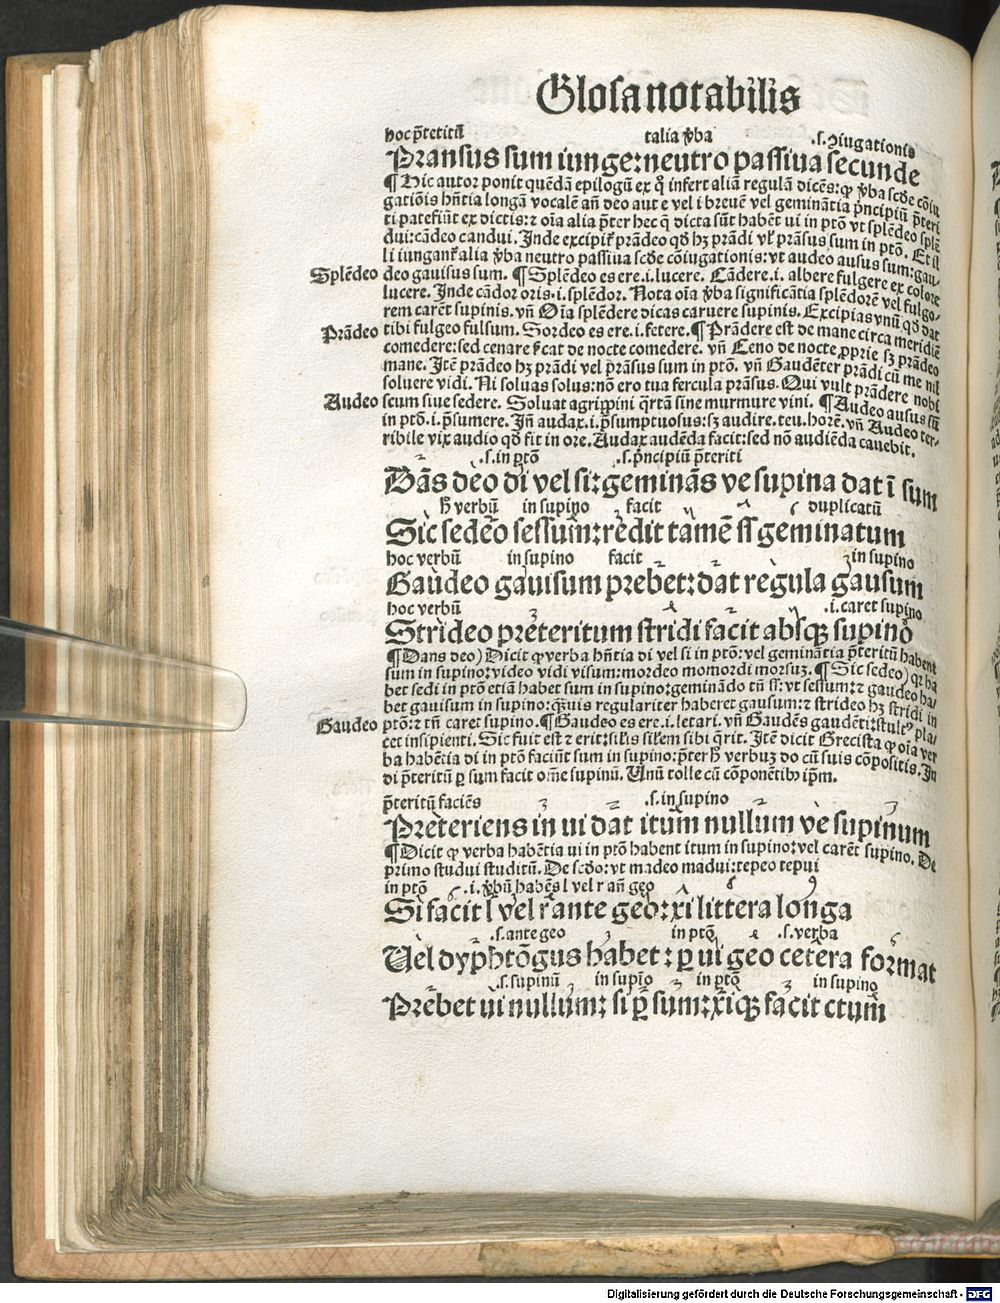 Glosa notabilis
hoc p̄teritū talia v̄ba .s.ↄiugationis
Pransus sum iunge: neutro passiua secunde
¶ Hic autor ponit quēdā epilogū ex q̊ infert aliā regulā dicēs: ꝙ v̄ba scd̄e cōiu
gatiōis hn̄tia longā vocalē an̄ deo aut e vel i breuē vel geminātia p̄ncipiū p̄teri
ti patefiūt ex dictis: ⁊ oīa alia p̄ter hec q̄ dicta sūt habēt ui in ptō vt splēdeo splē
dui: cādeo candui. Inde excipit̄ prādeo qd̄ hꝫ prādi vl̓ prāsus sum in ptō. Et il
li iungant̄ alia v̄ba neutro passiua scd̄e cōiugationis: vt audeo ausus sum: gau
Splēdeo deo gauisus sum. ¶ Splēdeo es ere .i. lucere. Cādere .i. albere fulgere ex colore
lucere. Inde cādor oris .i. splēdor. Nota oīa v̄ba significātia splēdorē vel fulgo-
rem carēt supinis. vn̄ Oīa splēdere dicas caruere supinis. Excipias vnū qd̄ dat
Prādeo tibi fulgeo fulsum. Sordeo es ere .i. fetere. ¶ Prādere est de mane circa meridiē
comedere: sed cenare sc̄at de nocte comedere. vn̄ Ceno de nocte ꝓprie sꝫ prādeo
mane. Itē prādeo hꝫ prādi vel prāsus sum in ptō. vn̄ Gaudēter prādi cū me nil
soluere vidi. Ni soluas solus: nō ero tua fercula prāsus. Qui vult prādere nobi
Audeo scum siue sedere. Soluat agrippini q̄rtā sine murmure vini. ¶ Audeo ausus sū
in ptō .i. p̄sumere. Jn̄ audax .i. p̄sumptuosus: sꝫ audire. teu. horē. vn̄ Audeo ter-
ribile vix audio qd̄ fit in ore. Audax audēda facit: sed nō audiēda cauebit.
.s. in ptō .s. p̄ncipiū p̄teriti
Dās deo di vel si: geminās ve supina dat ī sum
h̄ verbū in supino facit duplicatū
Sic sedeo sessum: redit tamē ss geminatum
hoc verbū in supino facit in supino
Gaudeo gauisum prebet: dat regula gausum
hoc verbū .i. caret supino
Strideo preteritum stridi facit absqꝫ supino
¶ Dans deo) Dicit ꝙ verba hn̄tia di vel si in ptō: vel geminātia p̄teritū habent
sum in supino: video vidi visum: mordeo momordi morsuꝫ. ¶ Sic sedeo) qꝛ ha
bet sedi in ptō etiā habet sum in supino: geminādo tn̄ ss: vt sessum: ⁊ gaudeo ha/
bet gauisum in supino: q̄uis regulariter haberet gausum: ⁊ strideo hꝫ stridi in
Gaudeo ptō: ⁊ tn̄ caret supino. ¶ Gaudeo es ere .i. letari. vn̄ Gaudēs gaudēti: stultꝰ pla/
cet insipienti. Sic fuit est ⁊ erit: sil̓is sil̓em sibi q̄rit. Itē dicit Grecista ꝙ oīa ver
ba habētia di in ptō faciūt sum in supino: p̄ter h̄ verbuꝫ do cū suis cōpositis. In
di p̄teritū ꝑ sum facit om̄e supinū. Unū tolle cū cōponētibꝰ ip̄m.
p̄teritū faciēs .s. in supino
Preteriens in ui dat itum nullum ve supinum
¶ Dicit ꝙ verba habētia ui in ptō habent itum in supino: vel carēt supino. De
primo studui studitū. De scd̄o: vt madeo madui: tepeo tepui
in ptō .i. v̄bū habēs l vel r an̄ geo
Si facit l vel r ante geo: xi littera longa
.s. ante geo in ptō .s. verba
Uel dyphtōgus habet: ꝑ ui geo cetera format
.s. supinū in supīo in ptō in supino
Prebet ui nullum: si ꝑ sum: xiqꝫ facit ctum
Digitalisierung gefördert durch die Deutsche Forschungsgemeinschaft - DFG